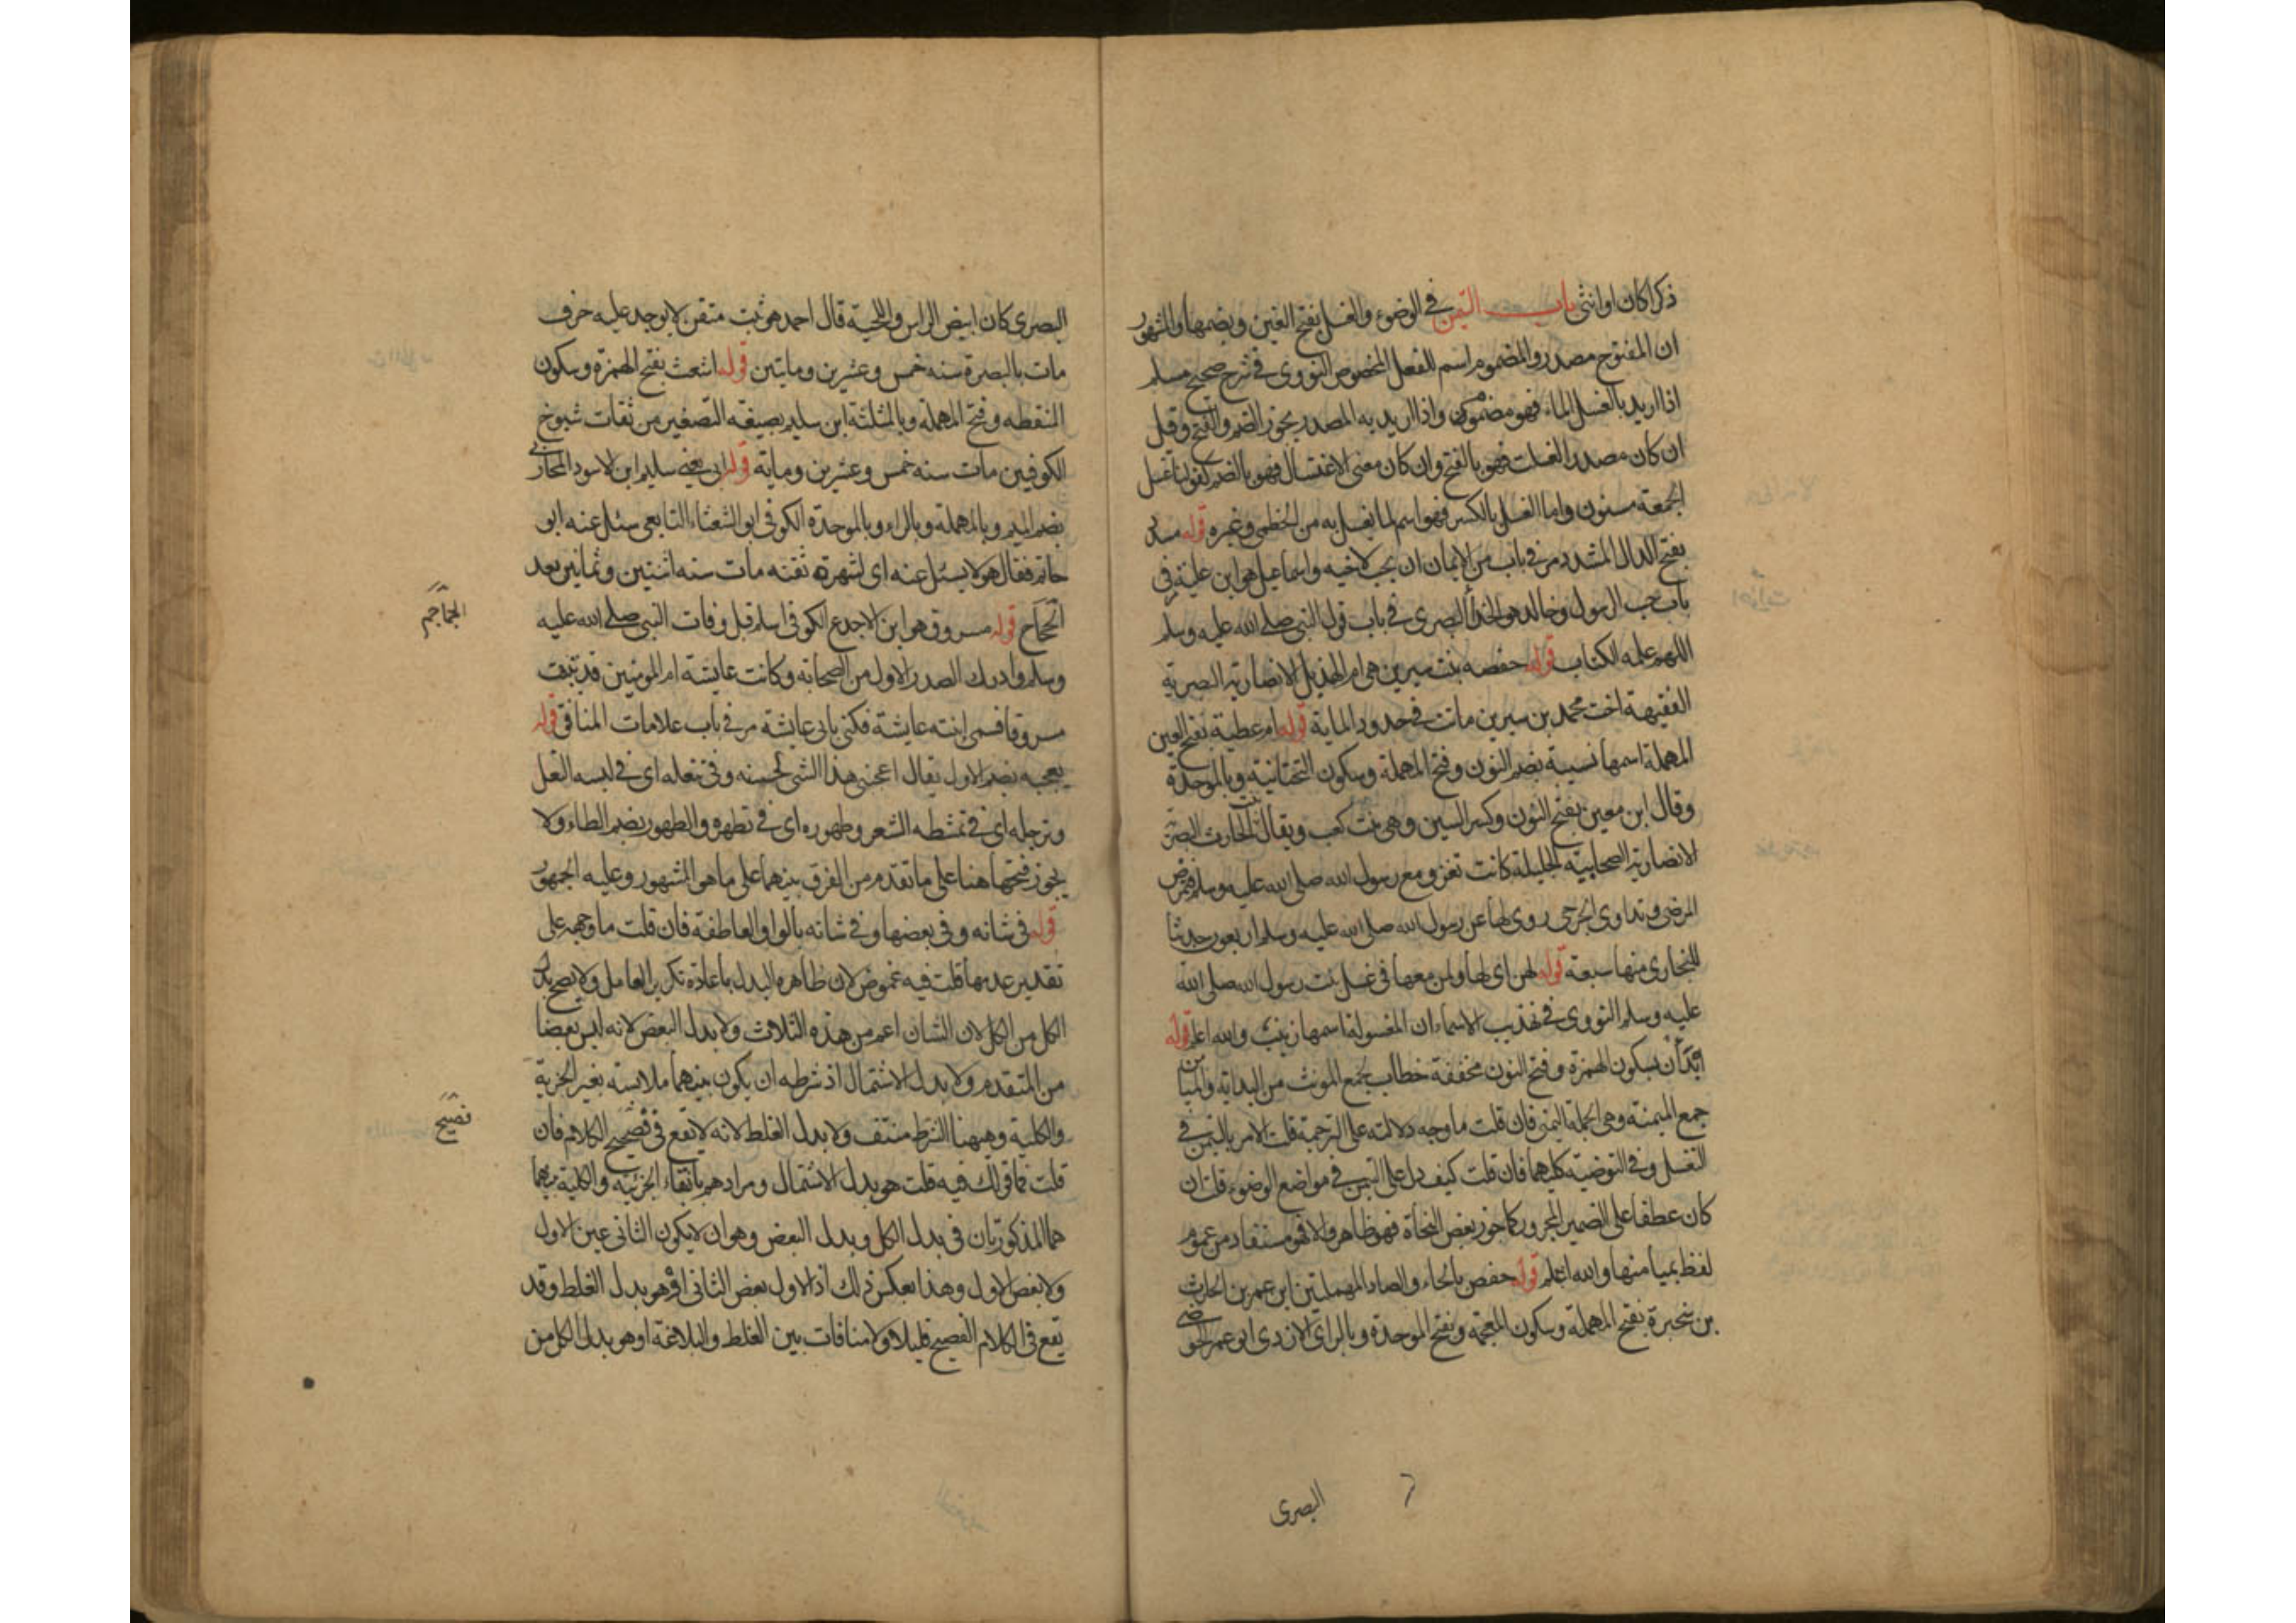 ذكرا كان او انثى باب التيمن في الوضوء والغسل بفتح الغين وبضمها والمشهور
ان المفتوح مصدر والمضموم اسم للفعل المخصوص النووى فى شرح صحيح مسلم
اذا اريد بالغسل الماء فهو مضموم واذا اريد به المصدر يجوز الضم والفتح وقيل
ان كان مصدر الغسلت فهو بالفتح وان كان معنى الاغتسال فهو بالضم كقولنا غسل
الجمعة مسنون واما الغسل بالكسر فهو اسم لما يغسل به من الخطمى وغيره قوله مسدد
بفتح الدال المشدد مر فى باب من الايمان ان يحب لاخيه واسماعيل هو ابن علية فى
باب حب الرسول وخالد هو الحذاء البصرى فى باب قول النبى صلى الله عليه وسلم
اللهم علمه الكتاب قوله حفصه بنت سيرين هى ام الهذيل الانصارية البصرية
الفقيهة اخت محمد بن سيرين ماتت فى حدود الماية قوله ام عطية بفتح العين
المهملة اسمها نسيبة بضم النون وفتح المهملة وسكون التحتانية وبالموحدة
وقال ابن معين بفتح النون وكسر السين وهى بنت كعب ويقال بنت الحارث البصرية
الانصارية الصحابية الجليلة كانت تغزو مع رسول الله صلى الله عليه وسلم فتمرض
المرضى وتداوى الجرحى روى لها عن رسول الله صلى الله عليه وسلم اربعون حديثا
للبخارى منها سبعة قوله لهن اى لها ولمن معها فى غسل بنت رسول الله صلى الله
عليه وسلم النووى فى تهذيب الاسماء ان المغسولة اسمها زينب والله اعلم قوله
ابدأن بسكون الهمزة وفتح النون مخففة خطاب لجمع المونث من البداية والميامن
جمع الميمنة وهى الجملة اليمنى فان قلت ما وجه دلالته على الترجمة قلت الامر بالتيمن فى
التغسل وفى التوضية كليهما فان قلت كيف دل على التيمن فى مواضع الوضوء قلت ان
كان عطفا على الضمير المجرور كما جوز بعض النحاة فهو ظاهر والا فهو مستفاد من عموم
لفظ بميامنها والله اعلم قوله حفص بالحاء والصاد المهملتين ابن عمر بن الحارث
بن سخبرة بفتح المهملة وسكون المعجمة وبفتح الموحدة وبالراى الازدى ابو عمر الحوضى
البصرى
البصرى كان ابيض الراس واللحية قال احمد هو ثبت متقن لا يوجد عليه حرف
مات بالبصرة سنه خمس وعشرين ومايتين قوله اشعث بفتح الهمزة وسكون
المنقطه وفتح المهملة وبالمثلثة ابن سليم بصيغة التصغير من ثقات شيوخ
الكوفيين مات سنه خمس وعشرين وماية قوله ابى يعنى سليم ابن الاسود المحاربى
بضم الميم وبالمهملة وبالراء وبالموحدة الكوفى ابو الشعثاء التابعى سئل عنه ابو
حاتم فقال هو لا يسئل عنه اى لشهرة ثقته مات سنه اثنتين وثمانين بعد
الجماجم قوله مسروق هو ابن الاجدع الكوفى اسلم قبل وفات النبى صلى الله عليه
الجماجم
وسلم وادرك الصدر الاول من الصحابة وكانت عايشة ام المومنين قد تبنت
مسروقا فسمى ابنته عايشة فكنى بابى عايشة مر فى باب علامات المنافق قوله
يعجبه بضم الاول يقال اعجبنى هذا الشى لحسنه وفى تنعله اى فى لبسه النعل
وترجله اى فى تمشطه الشعر وطهوره اى فى تطهره والطهور بضم الطاء ولا
يجوز فتحها هنا على ما تقدم من الفرق بينهما على ما هو المشهور وعليه الجمهور
قوله فى شانه وفى بعضها وفى شانه بالواو العاطفة فان قلت ما وجهه على
تقدير عدمها قلت فيه غموض لان ظاهره البدل باعادة تكرير العامل ولا يصح بدل
الكل من الكل لان الشان اعم من هذه الثلاث ولا بدل البعض لانه ليس بعضا
من المتقدم ولا بدل الاشتمال اذ شرطه ان يكون بينهما ملابسة بغير الجزية
والكلية وههنا الشرط منتف ولا بدل الغلط لانه لا يقع فى فصيح الكلام فان
فصيح
قلت فما قولك فيه قلت هو بدل الاشتمال ومرادهم بانتفاء الجزئية والكلية بينهما
هما المذكورتان فى بدل الكل وبدل البعض وهو ان لا يكون الثانى عين الاول
ولا بعض الاول وهذا بعكس ذلك اذ الاول بعض الثانى او هو بدل الغلط وقد
يقع فى الكلام الفصيح قليلا ولا منافات بين الغلط والبلاغة او هو بدل الكل من